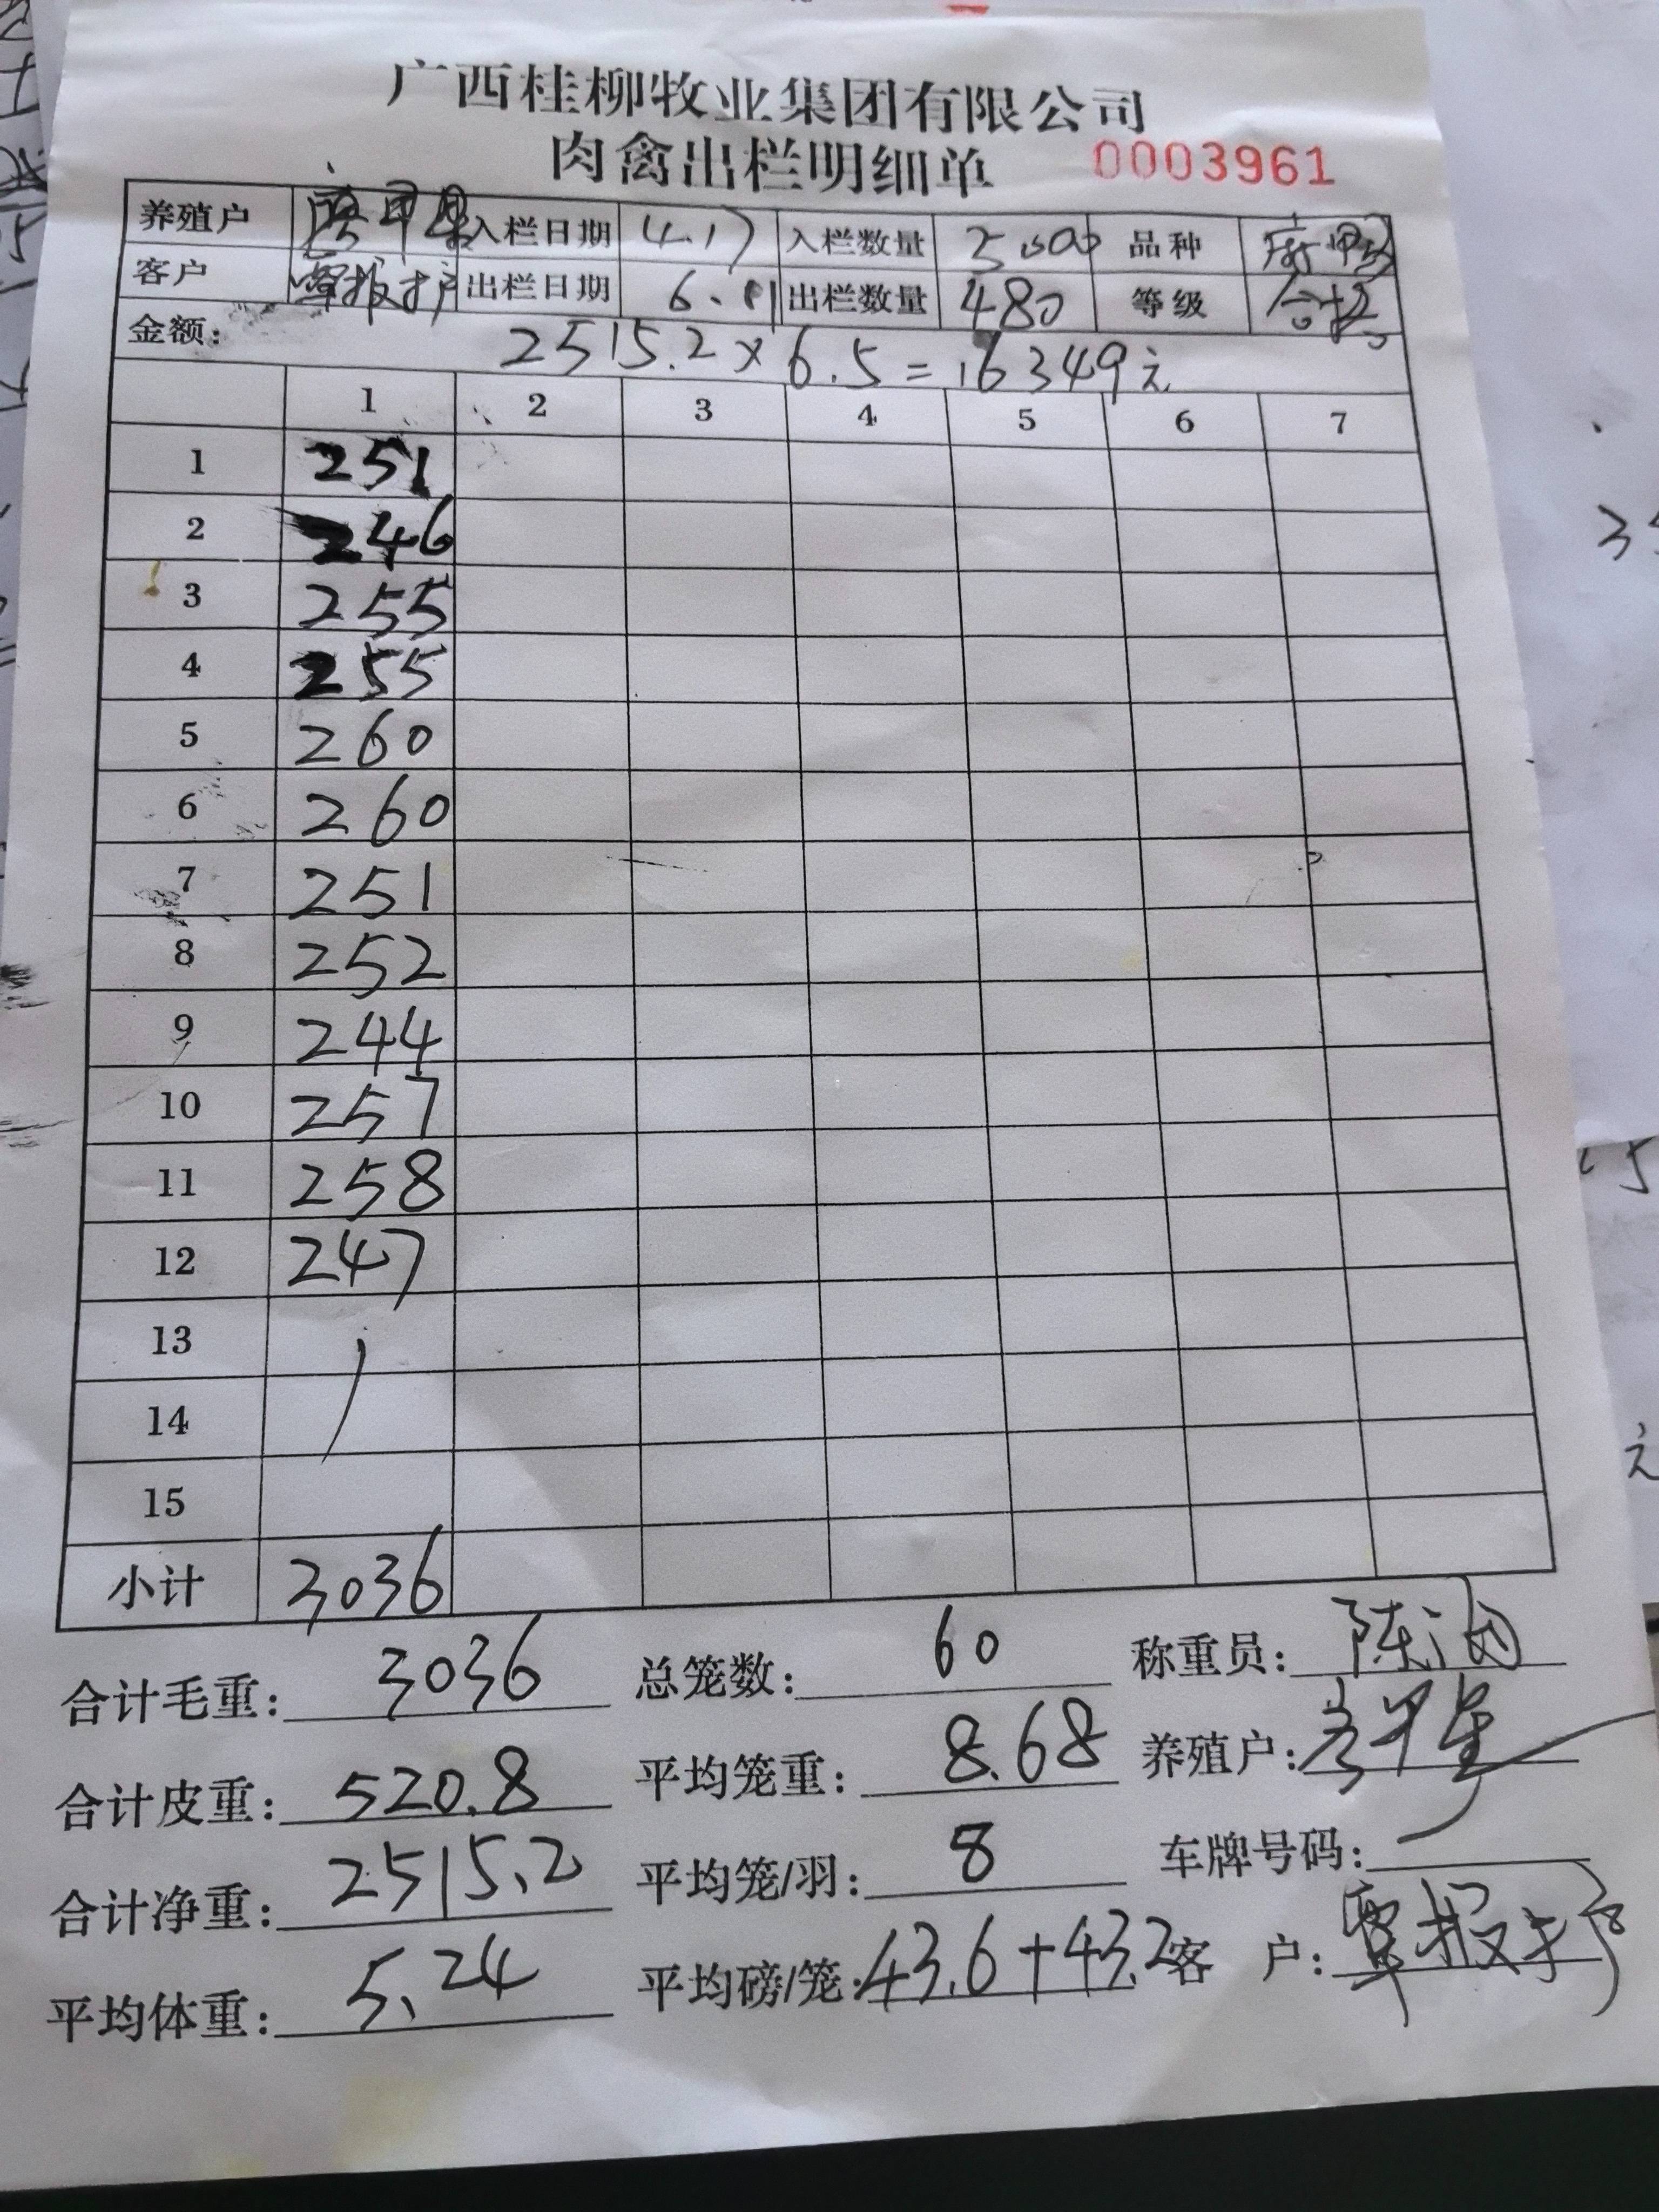 广西桂柳牧业集团有限公司
肉禽出栏明细单 0003961
养殖户 入栏日期 4.17 入栏数量 5000 品种
客户 覃报护 出栏日期 6.11 出栏数量 480 等级 合格
金额: 2515.2×6.5=16349元
1 2 3 4 5 6 7
1 251
2 246
3 255
4 255
5 260
6 260
7 251
8 252
9 244
10 257
11 258
12 247
13
14
15
小计 3036
合计毛重: 3036 总笼数: 60 称重员: 陈
合计皮重: 520.8 平均笼重: 8.68 养殖户:
合计净重: 2515.2 平均笼/羽: 8 车牌号码:
平均体重: 5.24 平均磅/笼: 43.6+43.2 客 户: 覃报护